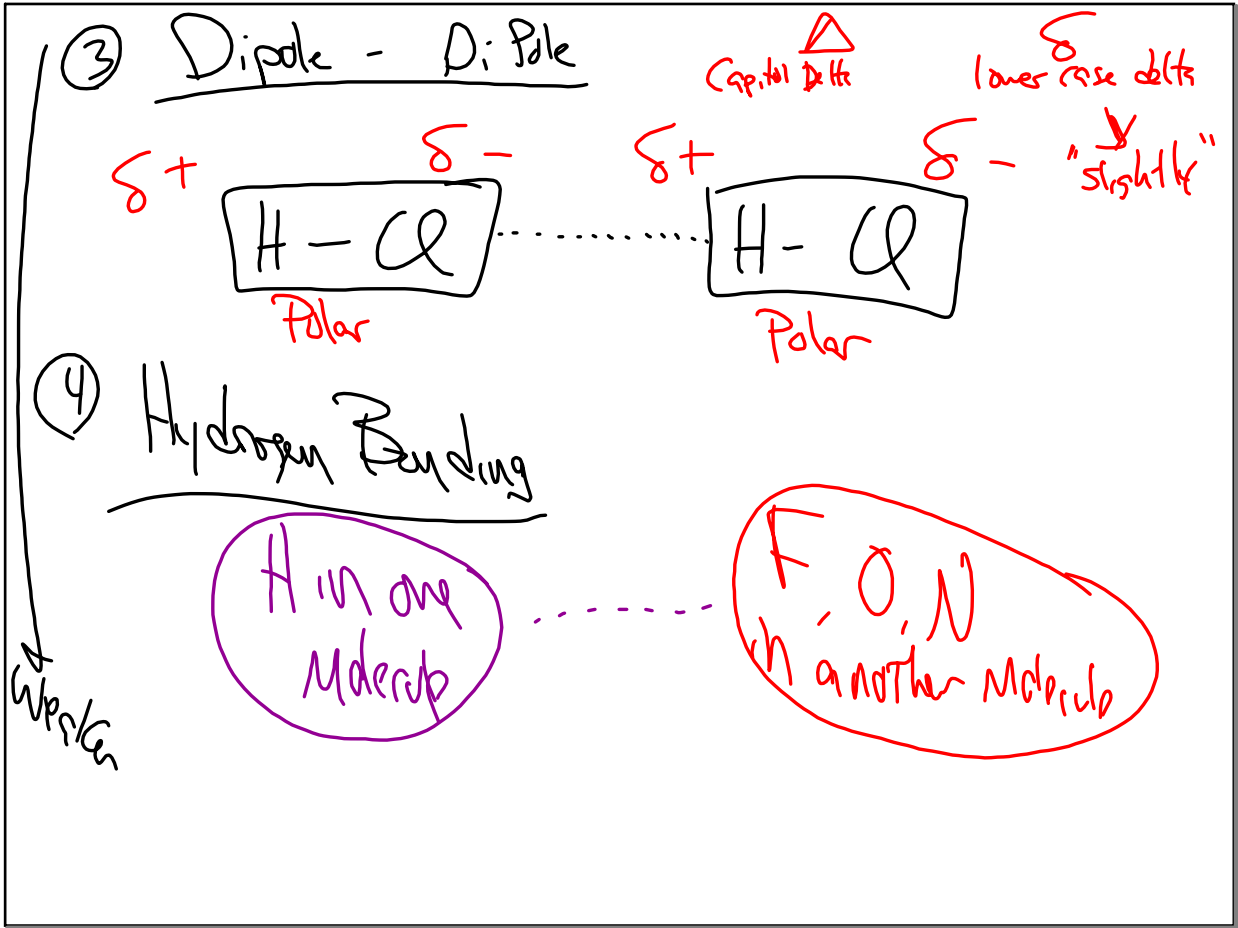 ③ Dipole - DiPole
Δ
Capitol Delta
δ
lower case delta
"slightly"
δ+ δ- δ+ δ-
H-Cl H-Cl
Polar Polar
④ Hydrogen Bonding
H in one
Molecule
F, O, N
in another Molecule
Weaker